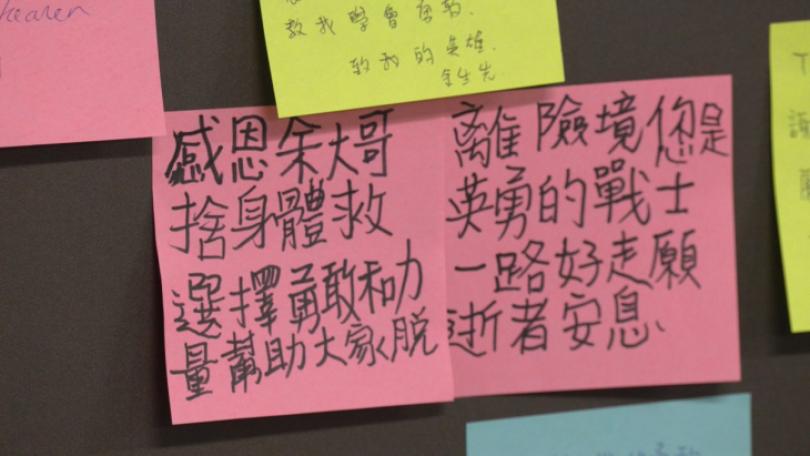 heaven
教我學會勇敢.
致我的英雄.
余先生
感恩余大哥
捨身體救
選擇勇敢和力
量幫助大家脫
離險境您是
英勇的戰士
一路好走願
逝者安息、